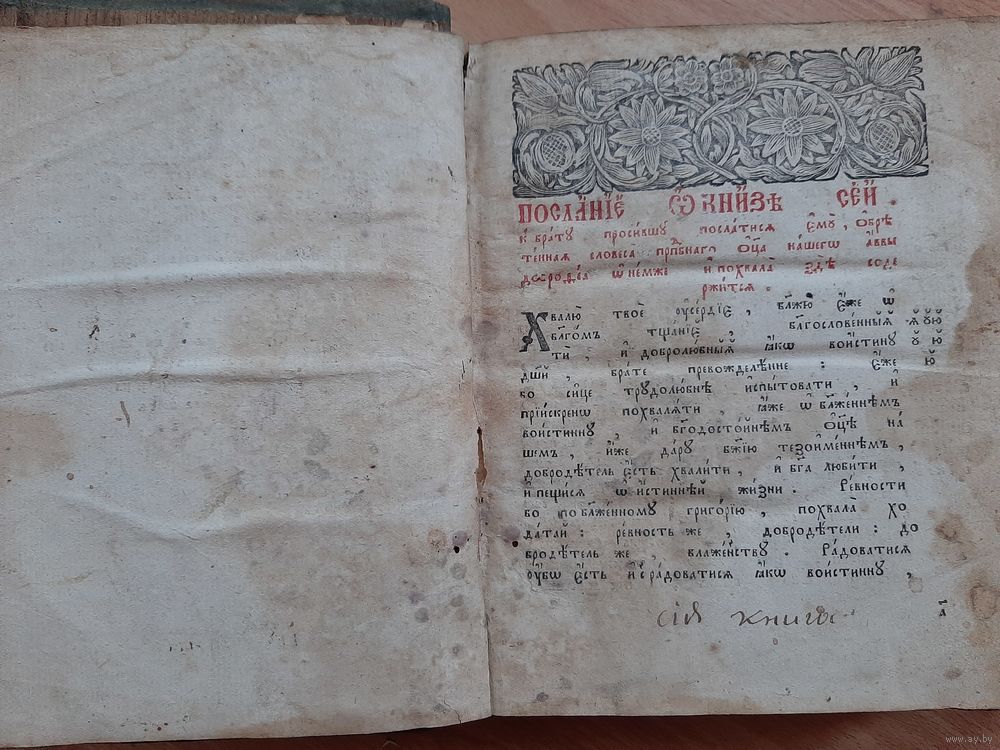 ПОСЛА́НІЕ Ѡ҆ КНИ́ЗѢ СЕ́Й .
К̾ бра́ту проси́вшу посла́тися є҆му̀ , ѡ҆брѣ
те́нная словеса̀ прпⷣбнагѡ ѻ҆ц҃а на́шегѡ а҆́ввы
дороѳе́а ѡ҆ не́мже и҆ похвала̀ здѣ̀ соде
ржи́тся .
Хвалю̀ твоѐ ѹ҆се́рдїе , бл҃жю̀ є҆́же ѡ҆
бл҃го́мъ тща́нїе , благослове́нный
ти , и҆ добролю́бный ꙗ҆́кѡ вои́стину
дш҃ѝ , бра́те превожделѣ́нне : є҆́же
бо си́це трудолю́бнѣ и҆спытова́ти , и҆
прїи́скренѡ похваля́ти , ꙗ҆̀же ѡ҆ бл҃же́ннѣмъ
вои́стинну , и҆ бг҃одосто́йнѣмъ ѻ҆ц҃ѣ̀ на́
шемъ , и҆́же да́ру бж҃їю тезоиме́ннѣмъ ,
добродѣ́тель є҆́сть хвали́ти , и҆ бг҃а люби́ти ,
и҆ пещи́ся ѡ҆ и҆́стиннѣй жи́зни . Ре́вности
бо по бл҃же́нному григо́рїю , похвала̀ хо
да́тай : ре́вность же , добродѣ́тели : до
бродѣ́тель же , влаже́нству . Ра́доватися
ѹ҆́бѡ є҆́сть и҆ сра́доватися ꙗ҆́кѡ вои́стинну ,
а҃
сія книга
www.ay.by